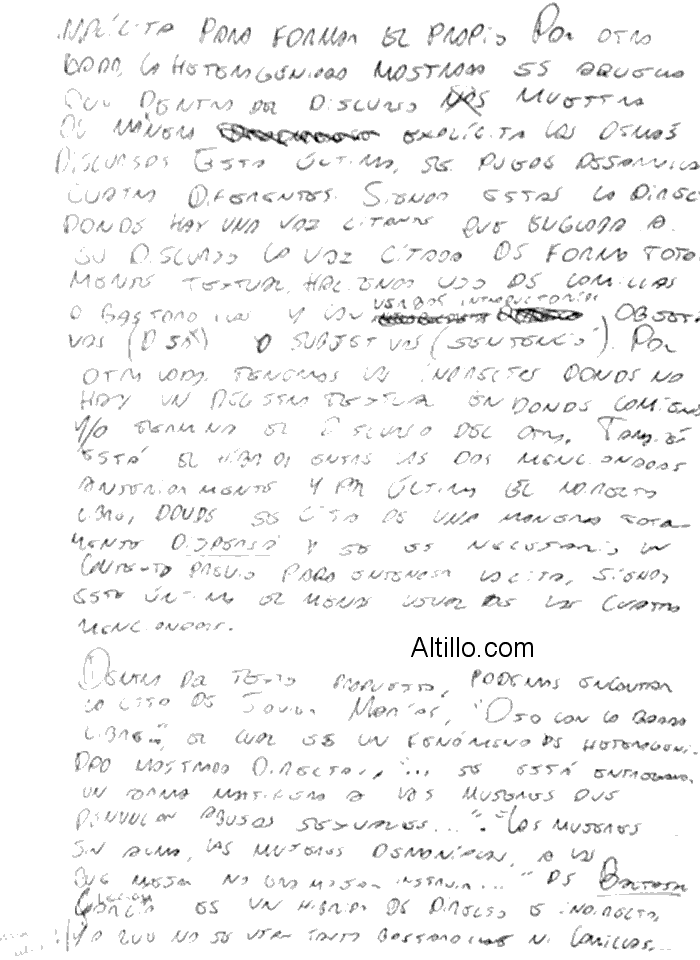 IMPLÍCITA PARA FORMAR EL PROPIO POR OTRO
LADO, LA HETEROGENIDAD MOSTRADA ES AQUELLA
QUE DENTRO DEL DISCURSO NOS MUESTRA
DE MANERA EXPLÍCITA LOS DEMÁS
DISCURSOS ESTA ÚLTIMA, SE PUEDE
CUATRO DIFERENTES. SIENDO ESTAS LA DIREC
DONDE HAY UNA VOZ CITANTE QUE ENGLOBA A
SU DISCURSO LA VOZ CITADA DE FORMA TOTAL
MENTE TEXTUAL, HACIENDO USO DE COMILLAS
VERBOS INTRODUCTORIOS
O BASTARDILLAS Y CON OBJETI
VOS ( ) O SUBJETIVOS (SENTENCIÓ). POR
OTRO LADO, TENEMOS LA INDIRECTA DONDE NO
HAY UN REGISTRO TEXTUAL EN DONDE COMIENZA
Y/O TERMINA EL DISCURSO DEL OTRO, TAMBIÉN
ESTÁ EL HÍBRIDO ENTRE LAS DOS MENCIONADAS
ANTERIORMENTE Y POR ÚLTIMO EL INDIRECTO
LIBRE, DONDE SE CITA DE UNA MANERA TOTAL
MENTE DISPERSA Y SE ES NECESARIO UN
CONTEXTO PREVIO PARA ENTENDER LA CITA, SIENDO
ESTE ÚLTIMO EL MENOS USUAL DE LOS CUATRO
MENCIONADOS.
Altillo.com
DENTRO DEL TEXTO PROPUESTO, PODEMOS ENCONTRAR
LA CITA DE JAVIER MARÍAS, "OJO CON LA BARRA
LIBRE...", EL CUAL ES UN FENÓMENO DE HETEROGENI-
DAD MOSTRADA DIRECTA, "... SE ESTÁ ENTREGANDO
UN ARMA MORTÍFERA A LAS MUJERES QUE
DENUNCIAN ABUSOS SEXUALES...". "LAS MUJERES
SIN ALMA, LAS MUJERES DEMONÍACAS, A LAS
QUE MEJOR NO INSTRUIR..." DE BALTASAR
GRACIÁN ES UN HÍBRIDO DE DIRECTO E INDIRECTO,
YA QUE NO SE VEN TANTO BASTARDILLAS NI COMILLAS...